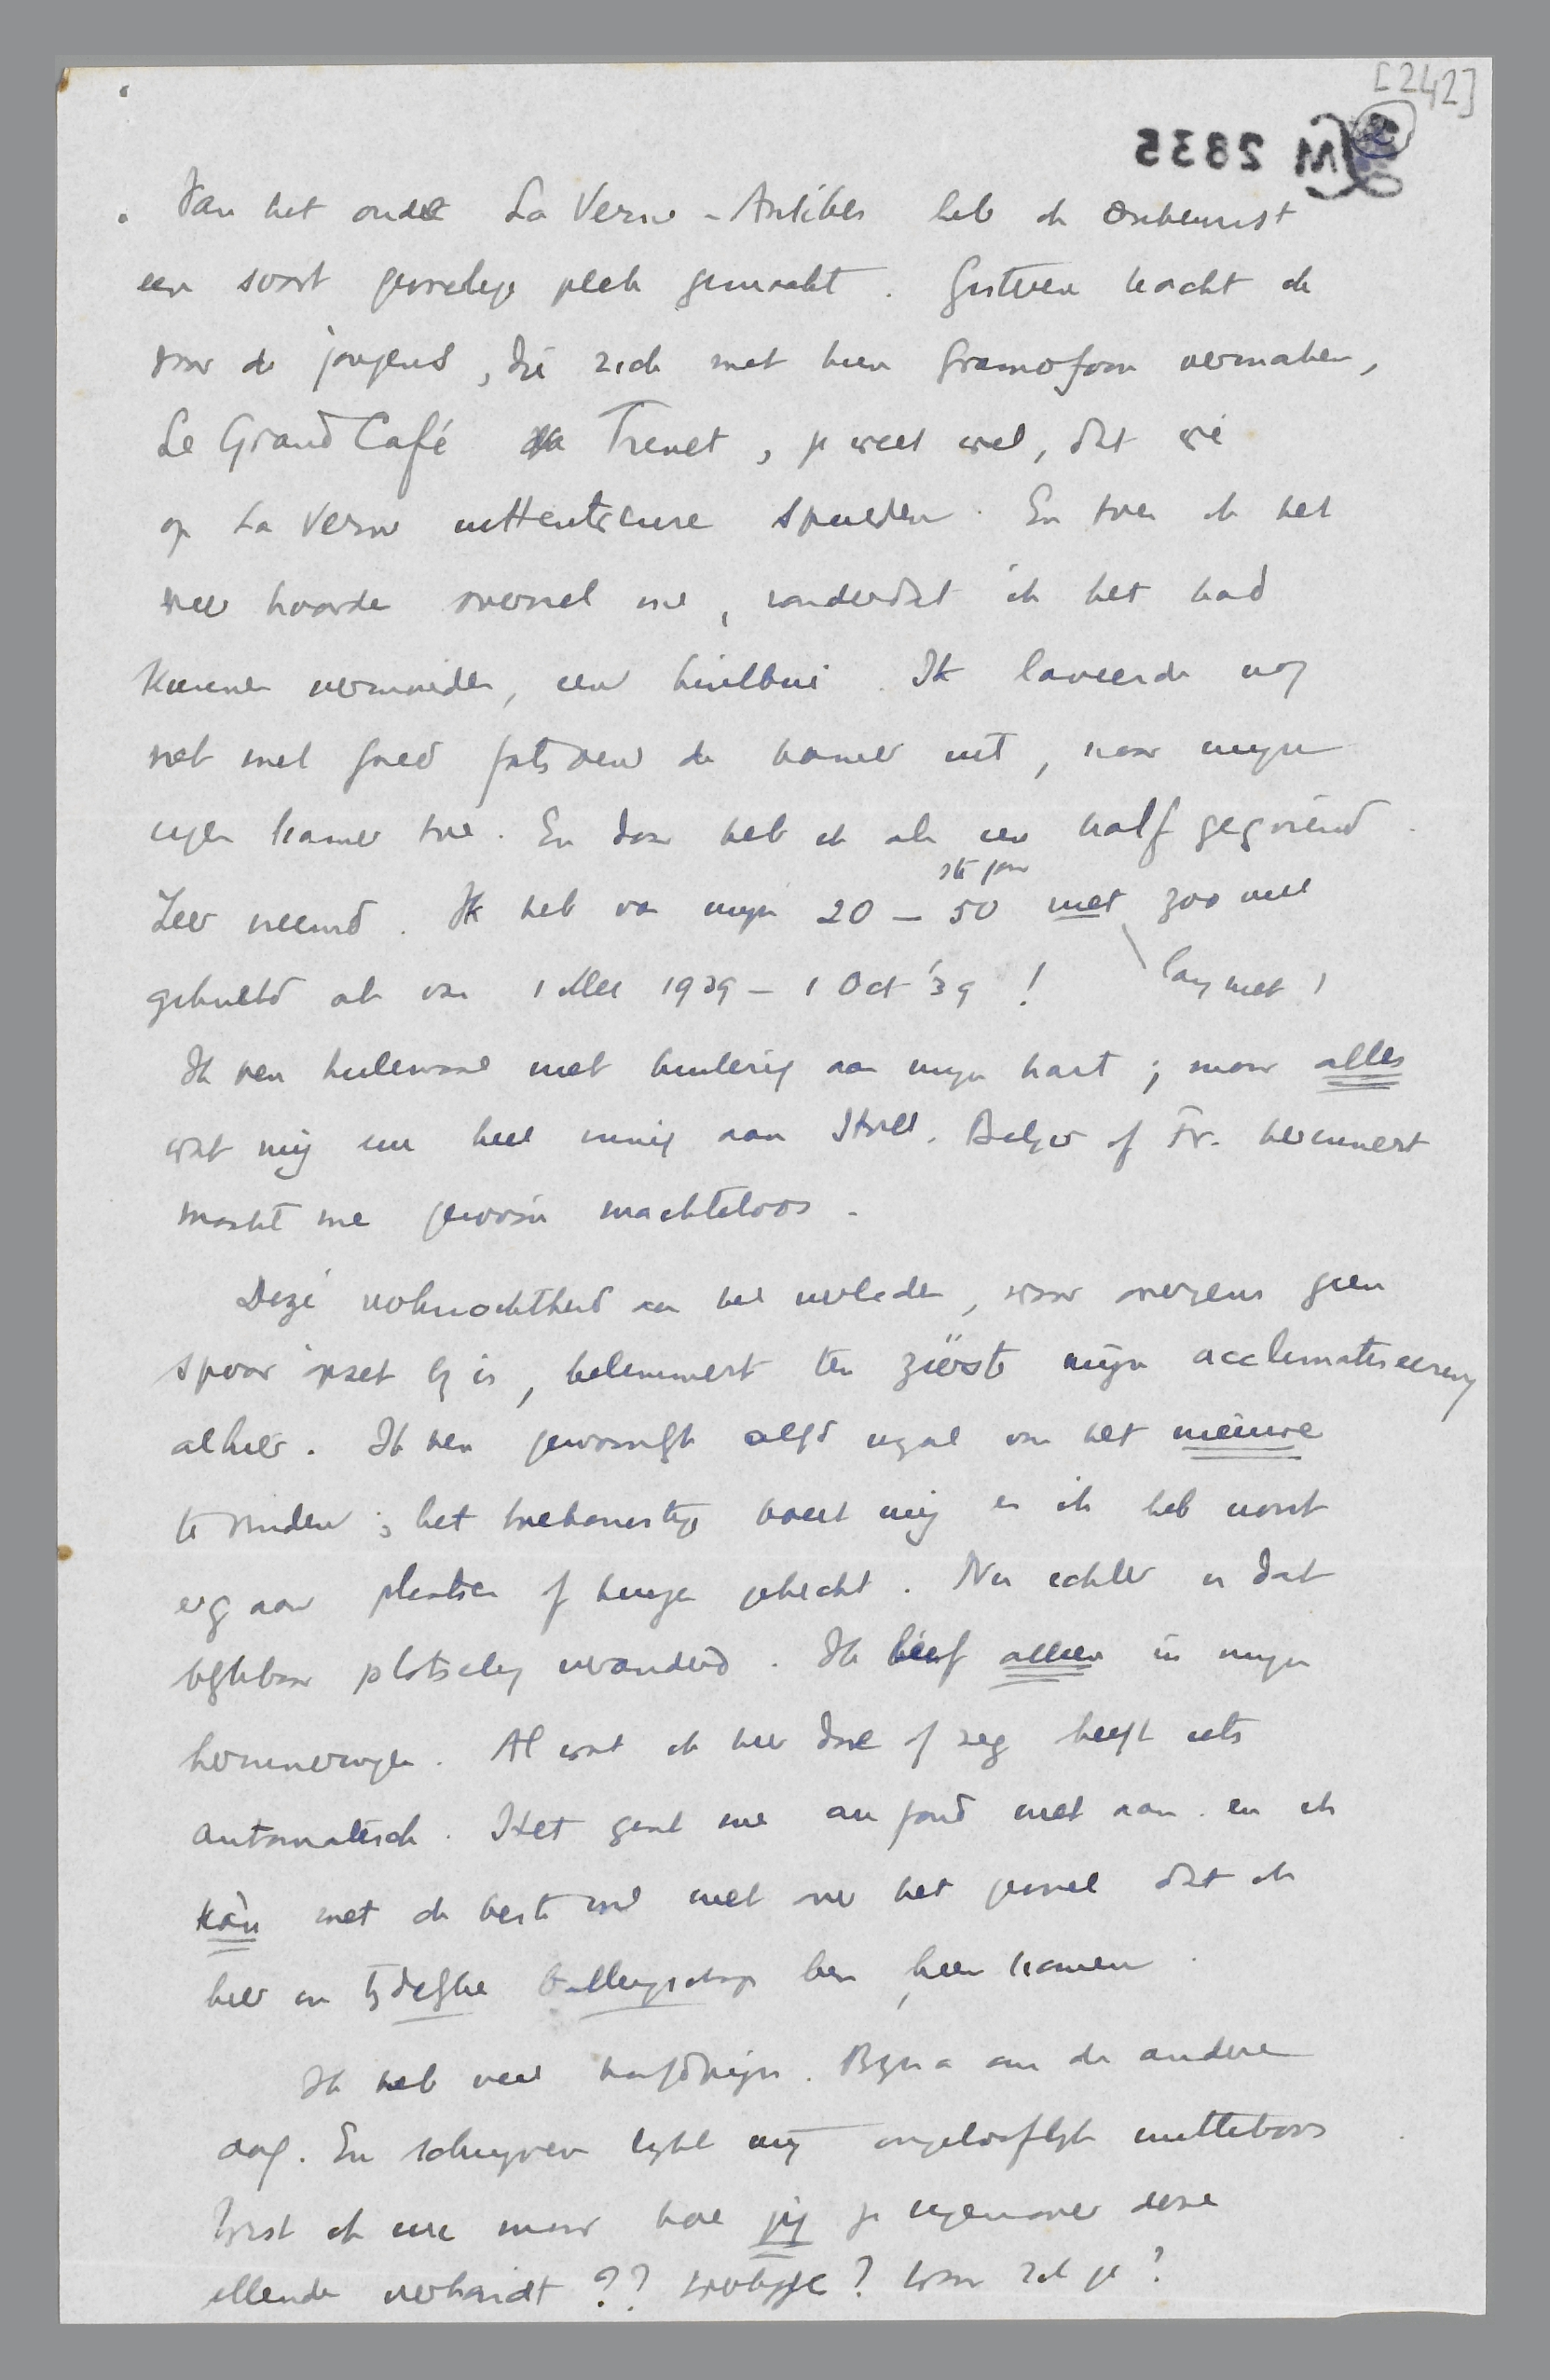 [242]
2
LM 2835
Van het oude La Verne - Antibes heb ik onbewust
een soort gevoelige plek gemaakt. Gisteren kocht ik
voor de jongens, die zich met hun gramofoon vermaken,
Le Grand Café Trenet, je weet wel, dat we
op La Verne speelden. En toen ik het
weer hoorde overviel me, zonder dat ik het had
kunnen vermijden, een huilbui. Ik laveerde nog
net met goed fatsoen de kamer uit, naar mijn
eigen kamer toe. En daar heb ik als een kalf gegriend.
Zeer vreemd. Ik heb van mijn 20 - 50 ste jaar niet zoo veel
gehuild als van 1 Mei 1939 - 1 Oct '39 ! lang niet !
Ik ben heelemaal niet huilerig van mijn aart ; maar alles
wat mij nu heel innig aan Holl. België of Fr. herinnert
maakt me gewoon machteloos.
Deze verknochtheid aan het verleden, waar overigens geen
spoor opzet bij is, belemmert ten zeerste mijn acclimatiseering
alhier. Ik ben gewoonlijk altijd van het nieuwe
te vinden ; het toekomstige boeit mij en ik heb nooit
erg aan plaatsen of huizen gehecht. Nu echter is dat
blijkbaar plotseling veranderd. Ik leef alleen in mijn
herinneringen. Al wat ik hier doe of zeg heeft iets
automatisch. Het gaat me au fond niet aan en ik
kàn met de beste wil niet over het gevoel dat ik
hier in tijdelijke ballingschap ben, heen komen.
Ik heb veel hoofdpijn. Bijna om de andere
dag. En schrijven lijkt mij ongelooflijk nutteloos
Wist ik nu maar hoe jij je tegenover deze
ellende verhoudt ?? Waar zit je ?